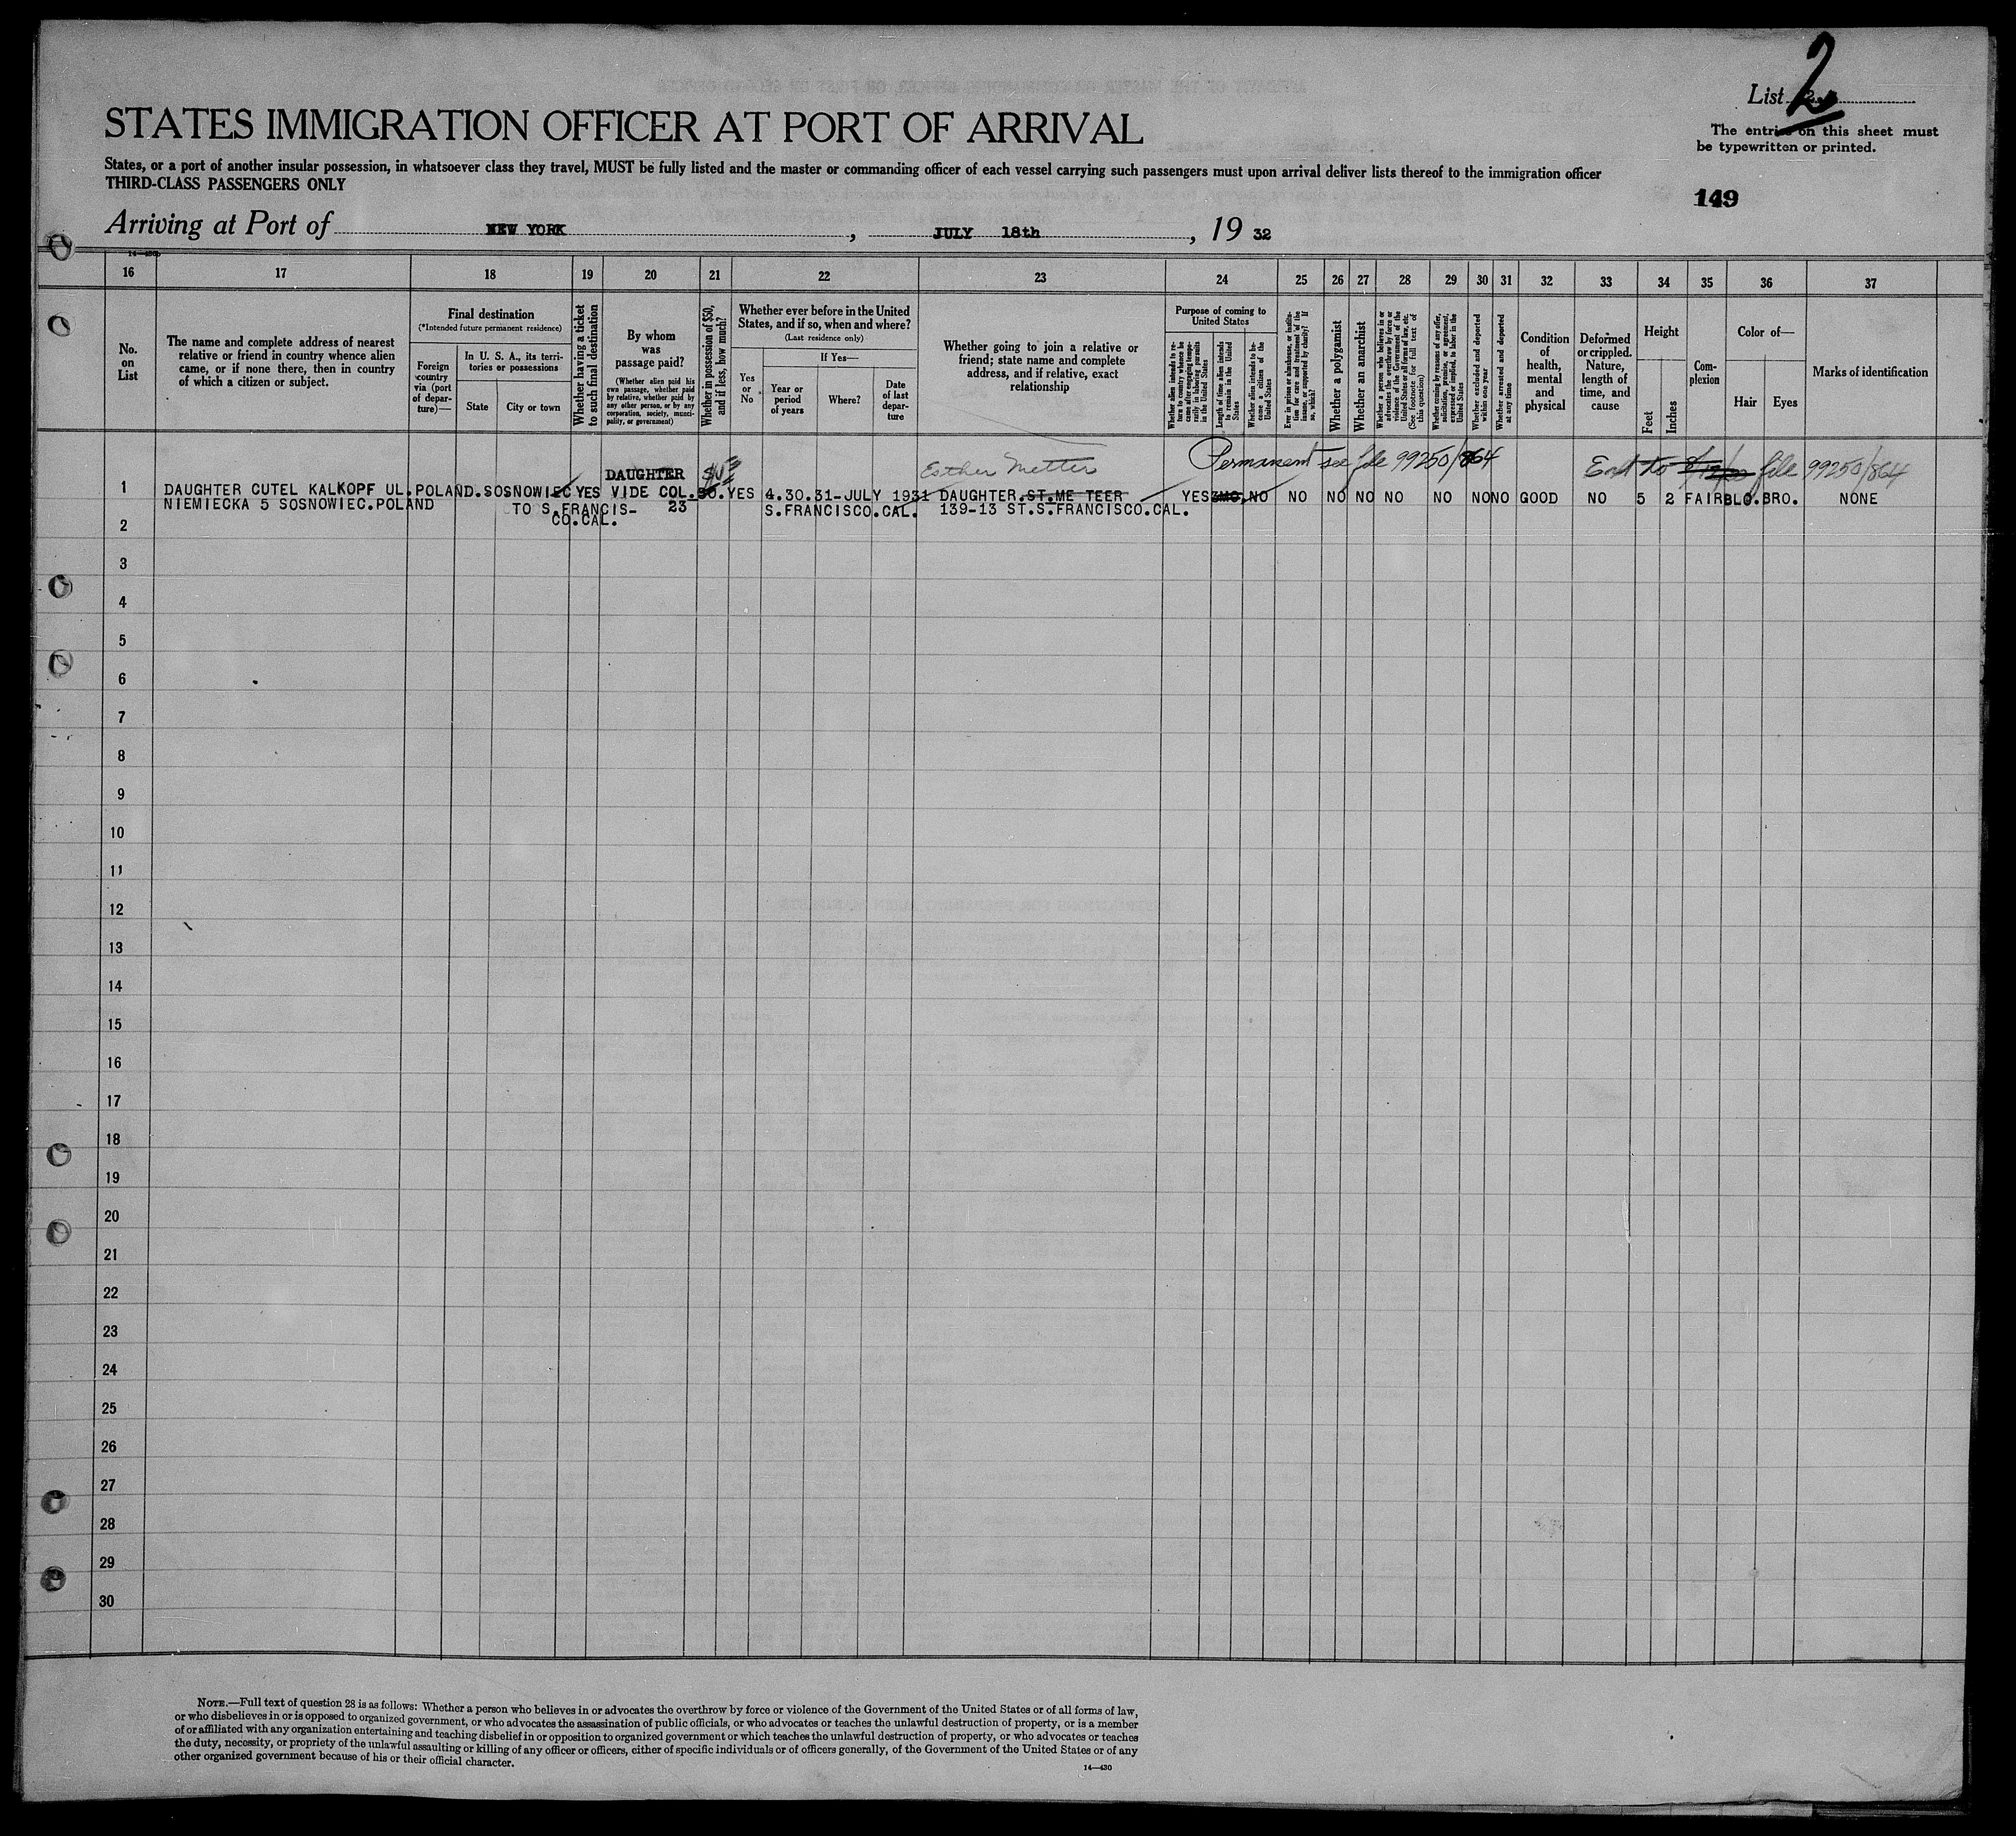 2
List 2
The entries on this sheet must
be typewritten or printed.
STATES IMMIGRATION OFFICER AT PORT OF ARRIVAL
States, or a port of another insular possession, in whatsoever class they travel, MUST be fully listed and the master or commanding officer of each vessel carrying such passengers must upon arrival deliver lists thereof to the immigration officer
THIRD-CLASS PASSENGERS ONLY
149
Arriving at Port of NEW YORK, JULY 18th, 19 32
16 17 18 19 20 21 22 23 24 25 26 27 28 29 30 31 32 33 34 35 36 37
No.
on
List
The name and complete address of nearest
relative or friend in country whence alien
came, or if none there, then in country
of which a citizen or subject.
Final destination
(*Intended future permanent residence)
Foreign
country
via (port
of depar-
ture)—
In U. S. A., its terri-
tories or possessions
State
City or town
Whether having a ticket
to such final destination
By whom
was
passage paid?
(Whether alien paid his
own passage, whether paid
by relative, whether paid by
any other person, or by any
corporation, society, munici-
pality, or government)
Whether in possession of $50,
and if less, how much?
Whether ever before in the United
States, and if so, when and where?
(Last residence only)
Yes
or
No
If Yes—
Year or
period
of years
Where?
Date
of last
depar-
ture
Whether going to join a relative or
friend; state name and complete
address, and if relative, exact
relationship
Purpose of coming to
United States
Whether alien intends to re-
turn to country whence he
came after engaging tempo-
rarily in laboring pursuits
in the United States
Length of time alien intends
to remain in the United
States
Whether alien intends to be-
come a citizen of the
United States
Ever in prison or almshouse, or institu-
tion for care and treatment of the
insane, or supported by charity? If
so, which?
Whether a polygamist
Whether an anarchist
Whether a person who believes in or
advocates the overthrow by force or
violence of the Government of the
United States or all forms of law, etc.
(See footnote for full text of
this question)
Whether coming by reasons of any offer,
solicitation, promise, or agreement,
expressed or implied, to labor in the
United States
Whether excluded and deported
within one year
Whether arrested and deported
at any time
Condition
of
health,
mental
and
physical
Deformed
or crippled.
Nature,
length of
time, and
cause
Height
Feet
Inches
Com-
plexion
Color of—
Hair
Eyes
Marks of identification
Esther Metter
Permanent see file 99250/864
file 99250/864
DAUGHTER
1 DAUGHTER CUTEL KALKOPF UL. POLAND.SOSNOWIEC YES VIDE COL. YES 4.30.31-JULY 1931 DAUGHTER.ST.ME TEER YES 3MO. NO NO NO NO NO NO NO NO GOOD NO 5 2 FAIR BLO. BRO. NONE
NIEMIECKA 5 SOSNOWIEC.POLAND TO S.FRANCIS- 23 S.FRANCISCO.CAL. 139-13 ST.S.FRANCISCO.CAL.
CO.CAL.
2
3
4
5
6
7
8
9
10
11
12
13
14
15
16
17
18
19
20
21
22
23
24
25
26
27
28
29
30
NOTE.—Full text of question 28 is as follows: Whether a person who believes in or advocates the overthrow by force or violence of the Government of the United States or of all forms of law,
or who disbelieves in or is opposed to organized government, or who advocates the assassination of public officials, or who advocates or teaches the unlawful destruction of property, or is a member
of or affiliated with any organization entertaining and teaching disbelief in or opposition to organized government or which teaches the unlawful destruction of property, or who advocates or teaches
the duty, necessity, or propriety of the unlawful assaulting or killing of any officer or officers, either of specific individuals or of officers generally, of the Government of the United States or of any
other organized government because of his or their official character.
14—430